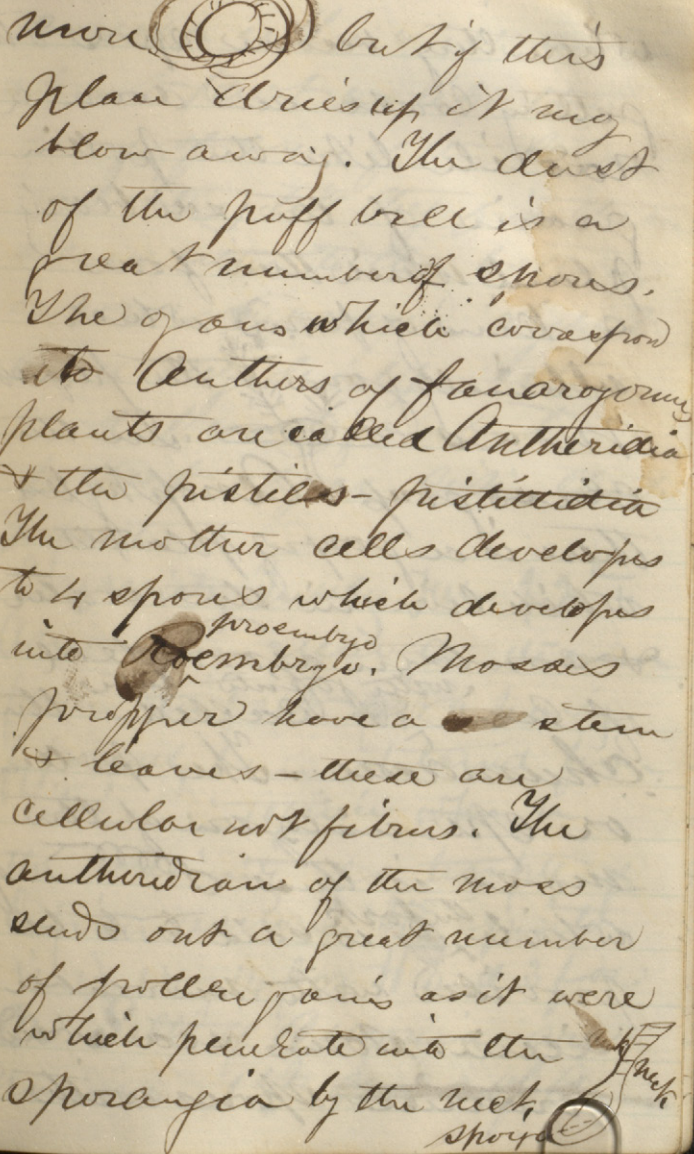 more but if this
place dries up it may
blow away. The dust
of the puff ball is a
great number of spores.
The organs which
to Anthers of
plants are called Antheridia
& the pistiles - pistittidia
The mother cells developes
to 4 spores which developes
proembryo
into Proembryo. Mosses
propper have a stem
& leaves - these are
cellular not fibrus. The
antheridian of the moss
sends out a great number
of pollen as it were
which penetrate into the
neck
sporangia by the neck